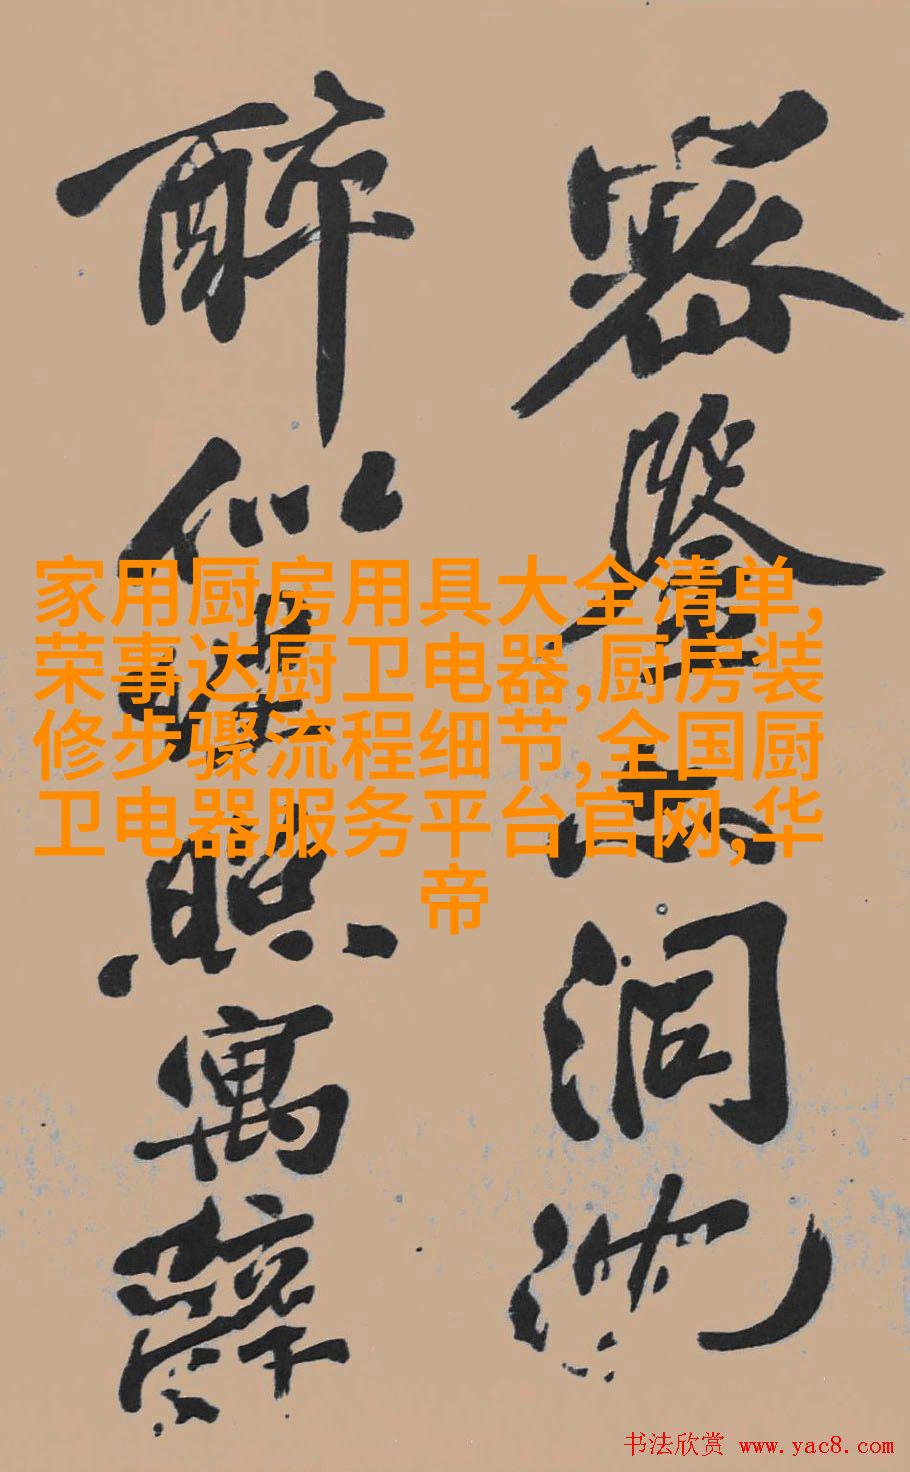 密鑒亦洞沈
醉似埋照寓辭
家用厨房用具大全清单,
荣事达厨卫电器,厨房装
修步骤流程细节,全国厨
卫电器服务平台官网,华
帝
书法欣赏 www.yac8.com